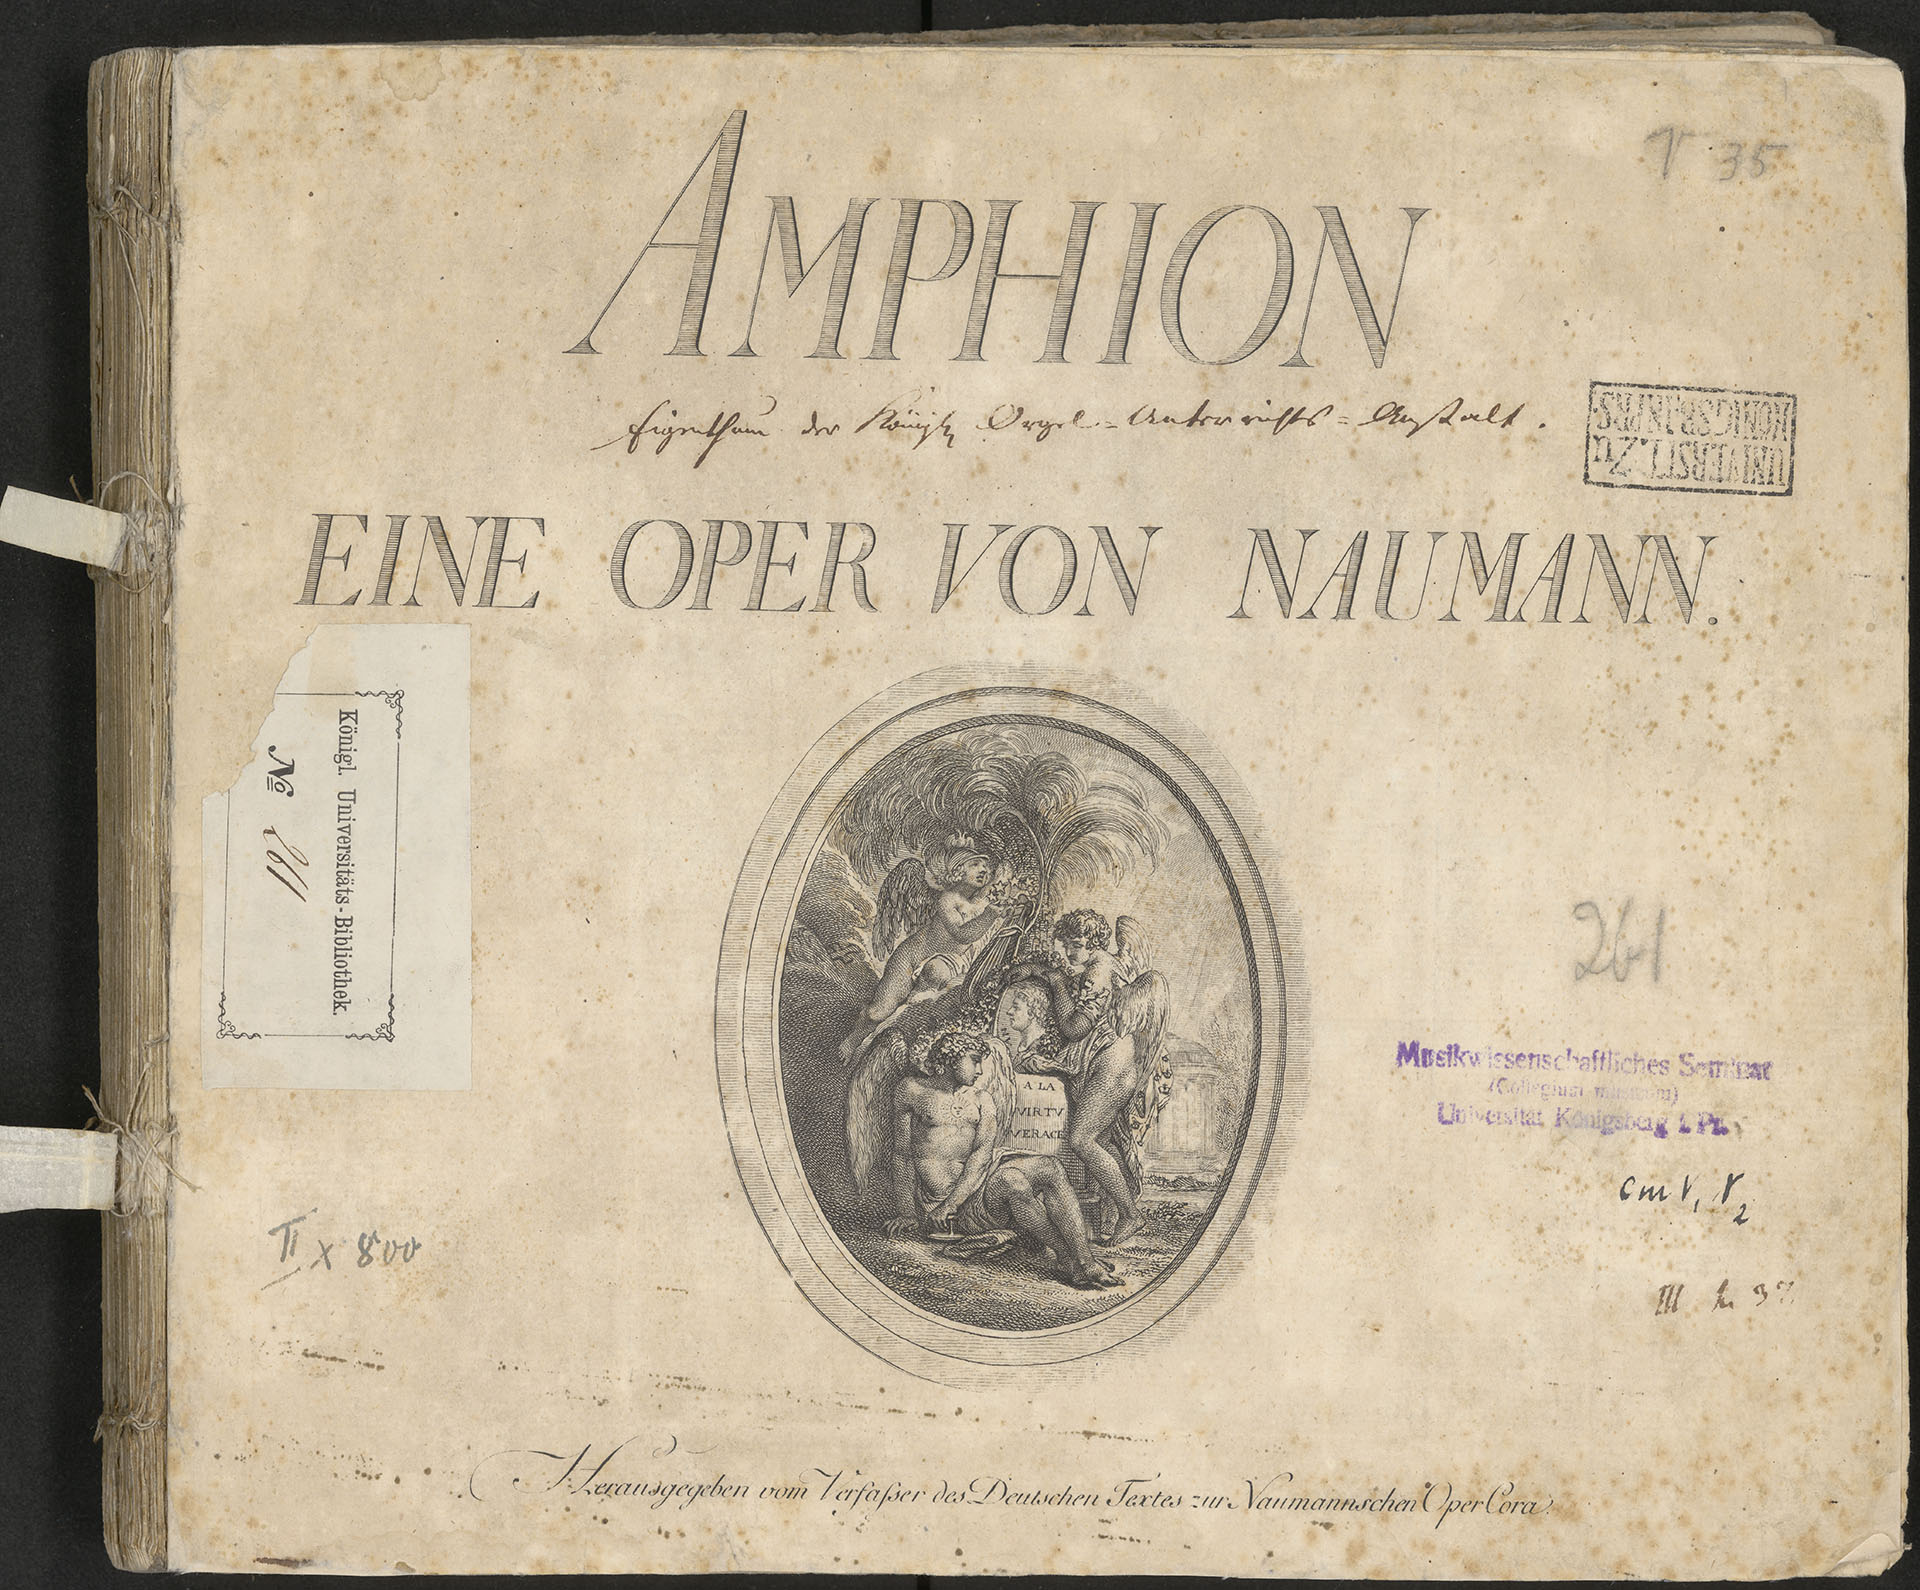 V 35
AMPHION
Eigenthum der Königl Orgel-Unterrichts-Anstalt.
UNIVERSIT. ZU
KÖNIGSB.IN PRS.
EINE OPER VON NAUMANN.
Königl. Universitäts-Bibliothek.
No 261
A LA
VIRTV
VERACE
261
Musikwissenschaftliches Seminar
(Collegium musicum)
Universität Königsberg i. Pr.
cm V, V 2
II x 800
III 37
Herausgegeben vom Verfaſser des Deutschen Textes zur Naumannschen Oper Cora.